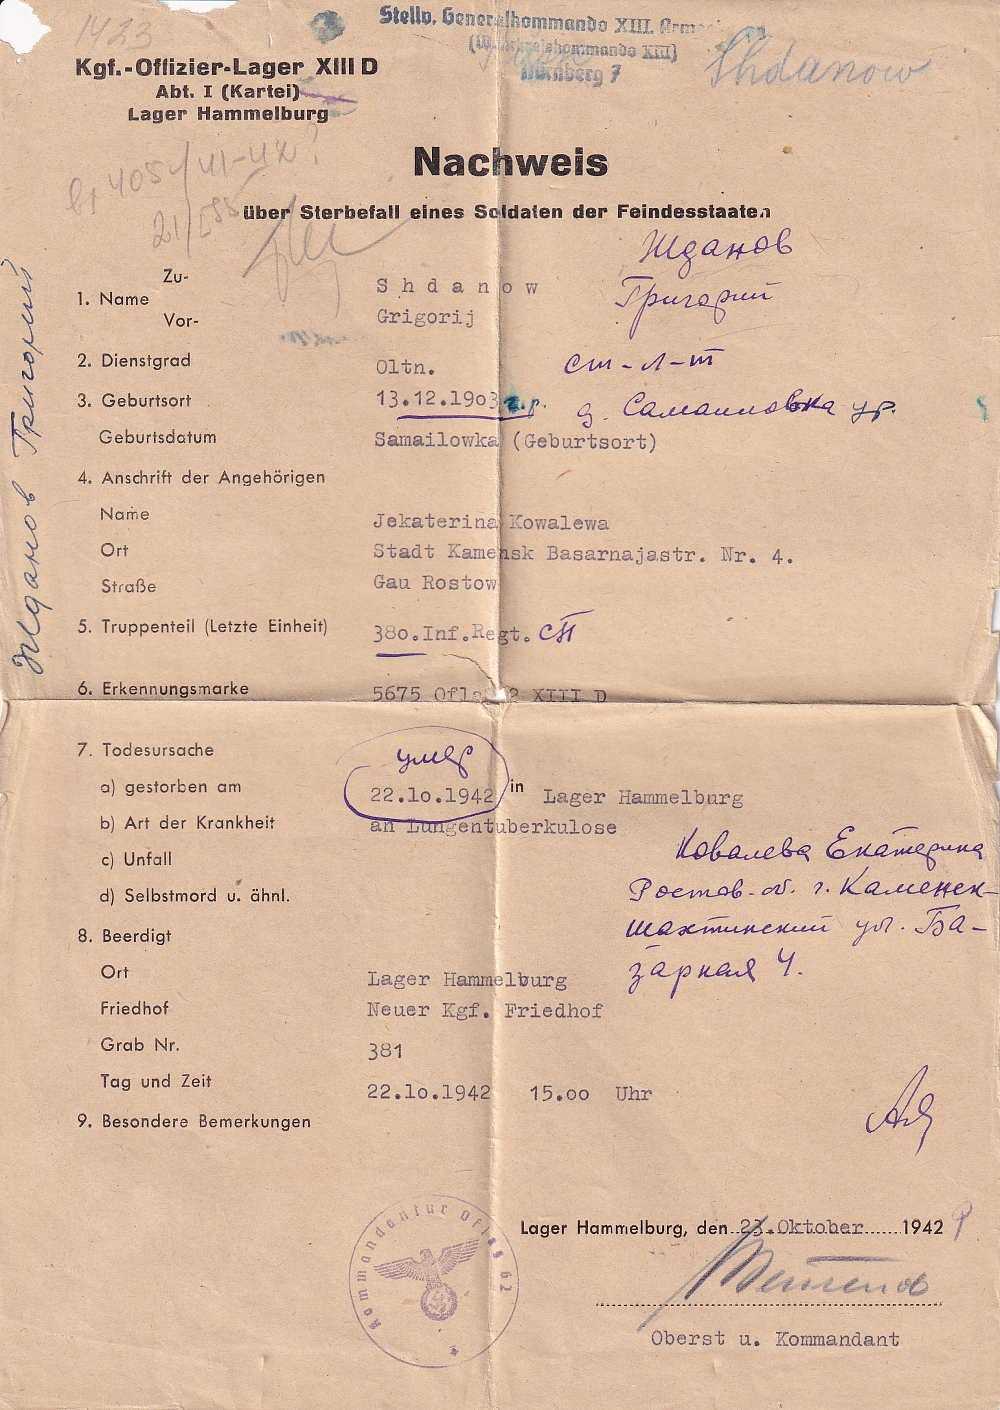 1423
Stellv. Generalkommando XIII. Arme
(Wehrkreiskommando XIII)
Nürnberg 7
Shdanow
Kgf.-Offizier-Lager XIII D
Abt. I (Kartei)
Lager Hammelburg
Nachweis
über Sterbefall eines Soldaten der Feindesstaaten
Жданов
Григорий
Жданов Григорий
Zu-
1. Name
Vor-
Shdanow
Grigorij
2. Dienstgrad Oltn. ст-л-т
3. Geburtsort 13.12.1903 г.р. д. Самаиловка ур.
Geburtsdatum Samailowka (Geburtsort)
4. Anschrift der Angehörigen
Name Jekaterina Kowalewa
Ort Stadt Kamensk Basarnajastr. Nr. 4.
Straße Gau Rostow
5. Truppenteil (Letzte Einheit) 380.Inf.Regt. СП
6. Erkennungsmarke 5675 XIII D
7. Todesursache умер
a) gestorben am 22.10.1942 in Lager Hammelburg
b) Art der Krankheit an Lungentuberkulose
c) Unfall
d) Selbstmord u. ähnl.
Ковалева Екатерина
Ростов-об. г. Каменск-
шахтинский ул. Ба-
зарная 4.
8. Beerdigt
Ort Lager Hammelburg
Friedhof Neuer Kgf. Friedhof
Grab Nr. 381
Tag und Zeit 22.10.1942 15.00 Uhr
9. Besondere Bemerkungen
Lager Hammelburg, den 23.Oktober 1942
Kommandantur Oflag 62
Oberst u. Kommandant